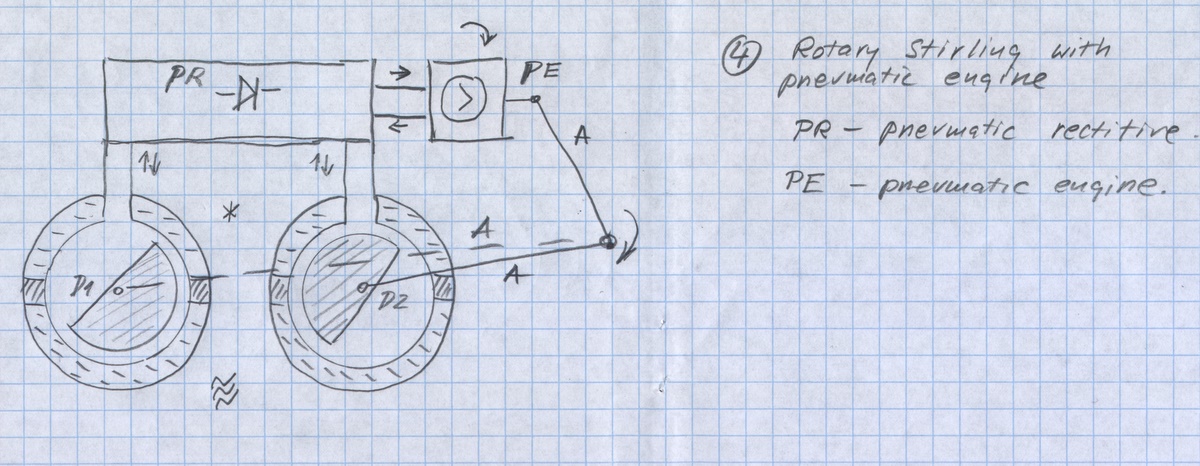 ④ Rotary Stirling with
pnevmatic engine
PR – pnevmatic rectitive.
PE – pnevmatic engine.
PR
PE
A
A
A
D1
D2